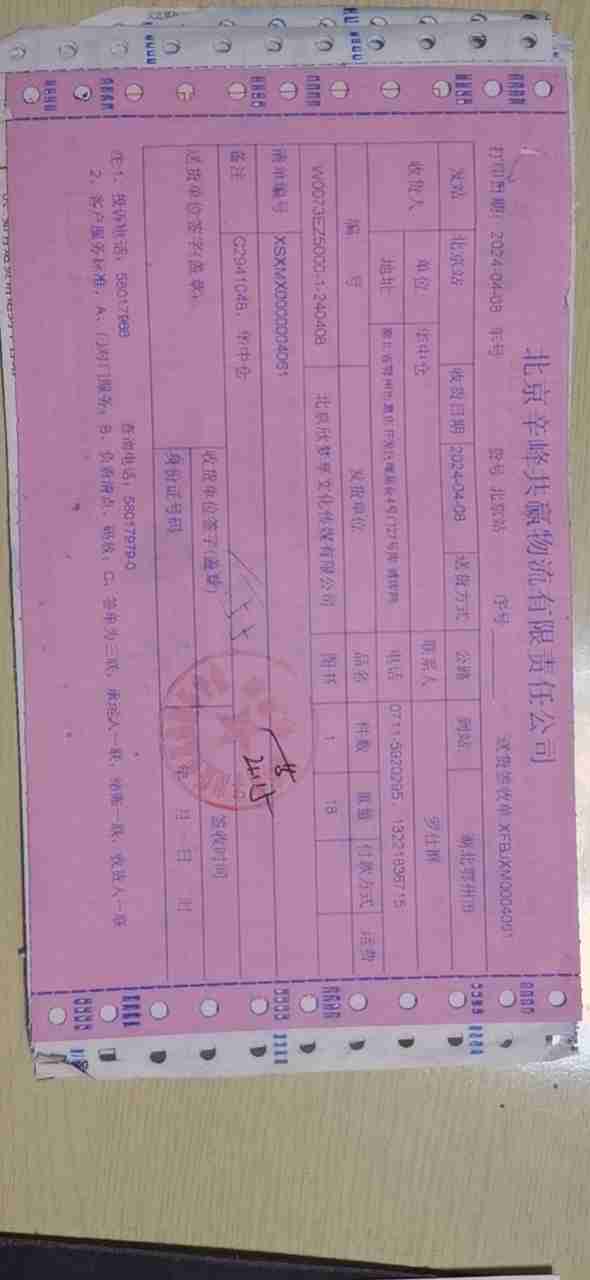 北京辛峰共赢物流有限责任公司
打印日期：2024-04-08 车号 货号 北京站 序号 送货签收单 XFBJXM0004061
发站 北京站 收货日期 2024-04-08 送货方式 公路 到站 湖北鄂州市
收货人 单位 华中仓 联系人
地址 电话 0711-5920295，13221838715
编号 发货单位 品名 件数 重量 付款方式 运费
W0073EZ5000-1-240408 北京欣梦享文化传媒有限公司 图书 1 18
清单编号 XSXMX0000004061
备注 G2941048，华中仓
送货单位签字(盖章) 收货单位签字(盖章) 签收时间
身份证号码 年 月 日 时
注:1、投诉电话：58017988 查询电话：58017979-0
2、客户服务标准，A、门对门服务。B、负责清点、码放；C、签单为三联，承运人一联，结账一联，收货人一联